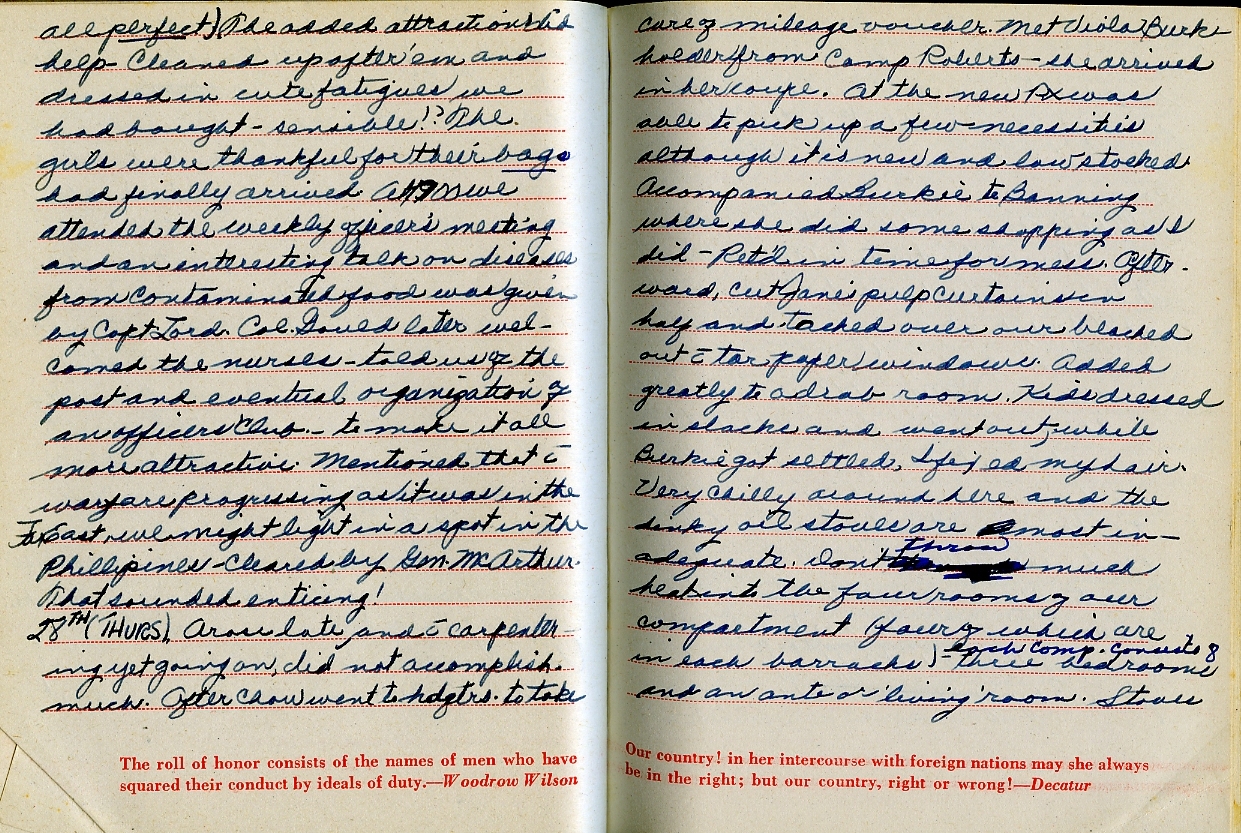 all perfect) The added attraction did
help - Cleaned up after 'em and
dressed in cute fatigues we
had bought - sensible!? The
girls were thankful for their bags
had finally arrived. At 1900 we
attended the weekly officer's meeting
and an interesting talk on diseases
from contaminated food was given
by Capt. Lord. Col. Gould later wel-
comed the nurses - told us of the
post and eventual organization of
an officers' Club - to make it all
more attractive. Mentioned that c̄
warfare progressing as it was in the
Far East, we might light in a spot in the
Phillipines - cleared by Gen. McArthur.
That sounded enticing!
28TH (THURS). Arose late, and c̄ carpenter-
ing yet going on, did not accomplish
much. After chow went to hdqtrs. to take
The roll of honor consists of the names of men who have
squared their conduct by ideals of duty.—Woodrow Wilson
care of mileage voucher. Met Viola Burk-
holder from Camp Roberts - she arrived
in her coupe. At the new PX was
able to pick up a few necessitiis
although it is new and low stocked.
Accompanied Burkie to Banning
where she did some shopping as I
did - Ret'd in time for mess. After-
ward, cut Jane's pulp curtains in
half and tacked over our blacked
out c̄ tar paper windows. Added
greatly to a drab room. Kids dressed
in slacks and went out; while
Burkie got settled, I fixed my hair.
Very chilly around here and the
dinky oil stoves are most in-
adequate. Don't throw much
heat into the four rooms of our
compartment (four of which are
in each barracks) - each comp. consists of
three bedrooms
and an ante or 'living' room. Stoves
Our country! in her intercourse with foreign nations may she always
be in the right; but our country, right or wrong!—Decatur